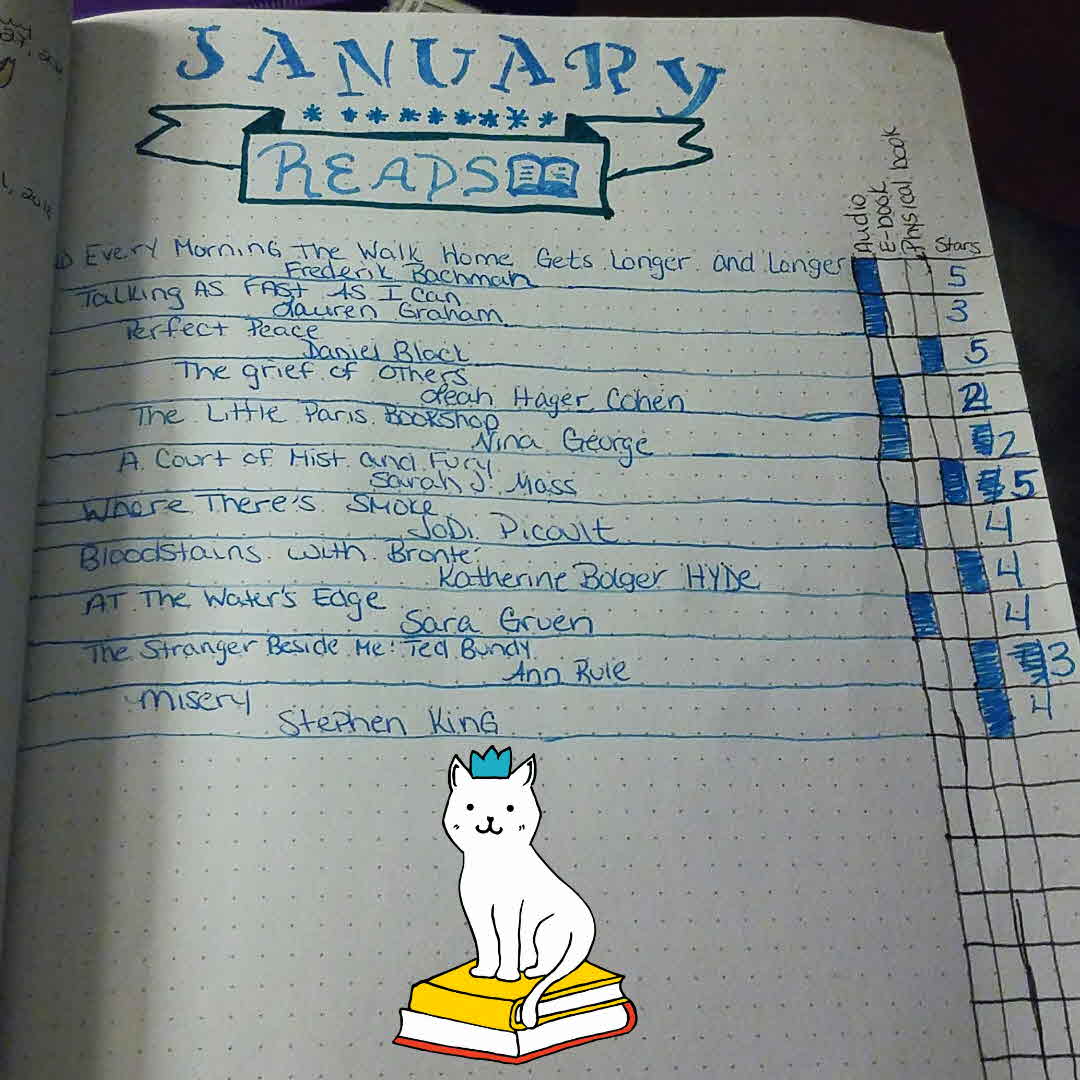 JANUARY
READS
Audio
E-book
Physical book
Stars
Every Morning The Walk Home Gets Longer and Longer
Frederik Bachman
5
Talking As Fast As I Can
Lauren Graham
3
Perfect Peace
Daniel Black
5
The grief of others
Leah Hager Cohen
The Little Paris Bookshop
Nina George
2
A Court of Mist and Fury
Sarah J. Mass
5
Where There's Smoke
JoDi Picoult
4
Bloodstains with Bronte
Katherine Bolger HYDe
4
AT The Water's Edge
Sara Gruen
4
The Stranger Beside Me: Ted Bundy
Ann Rule
3
Misery
Stephen King
4